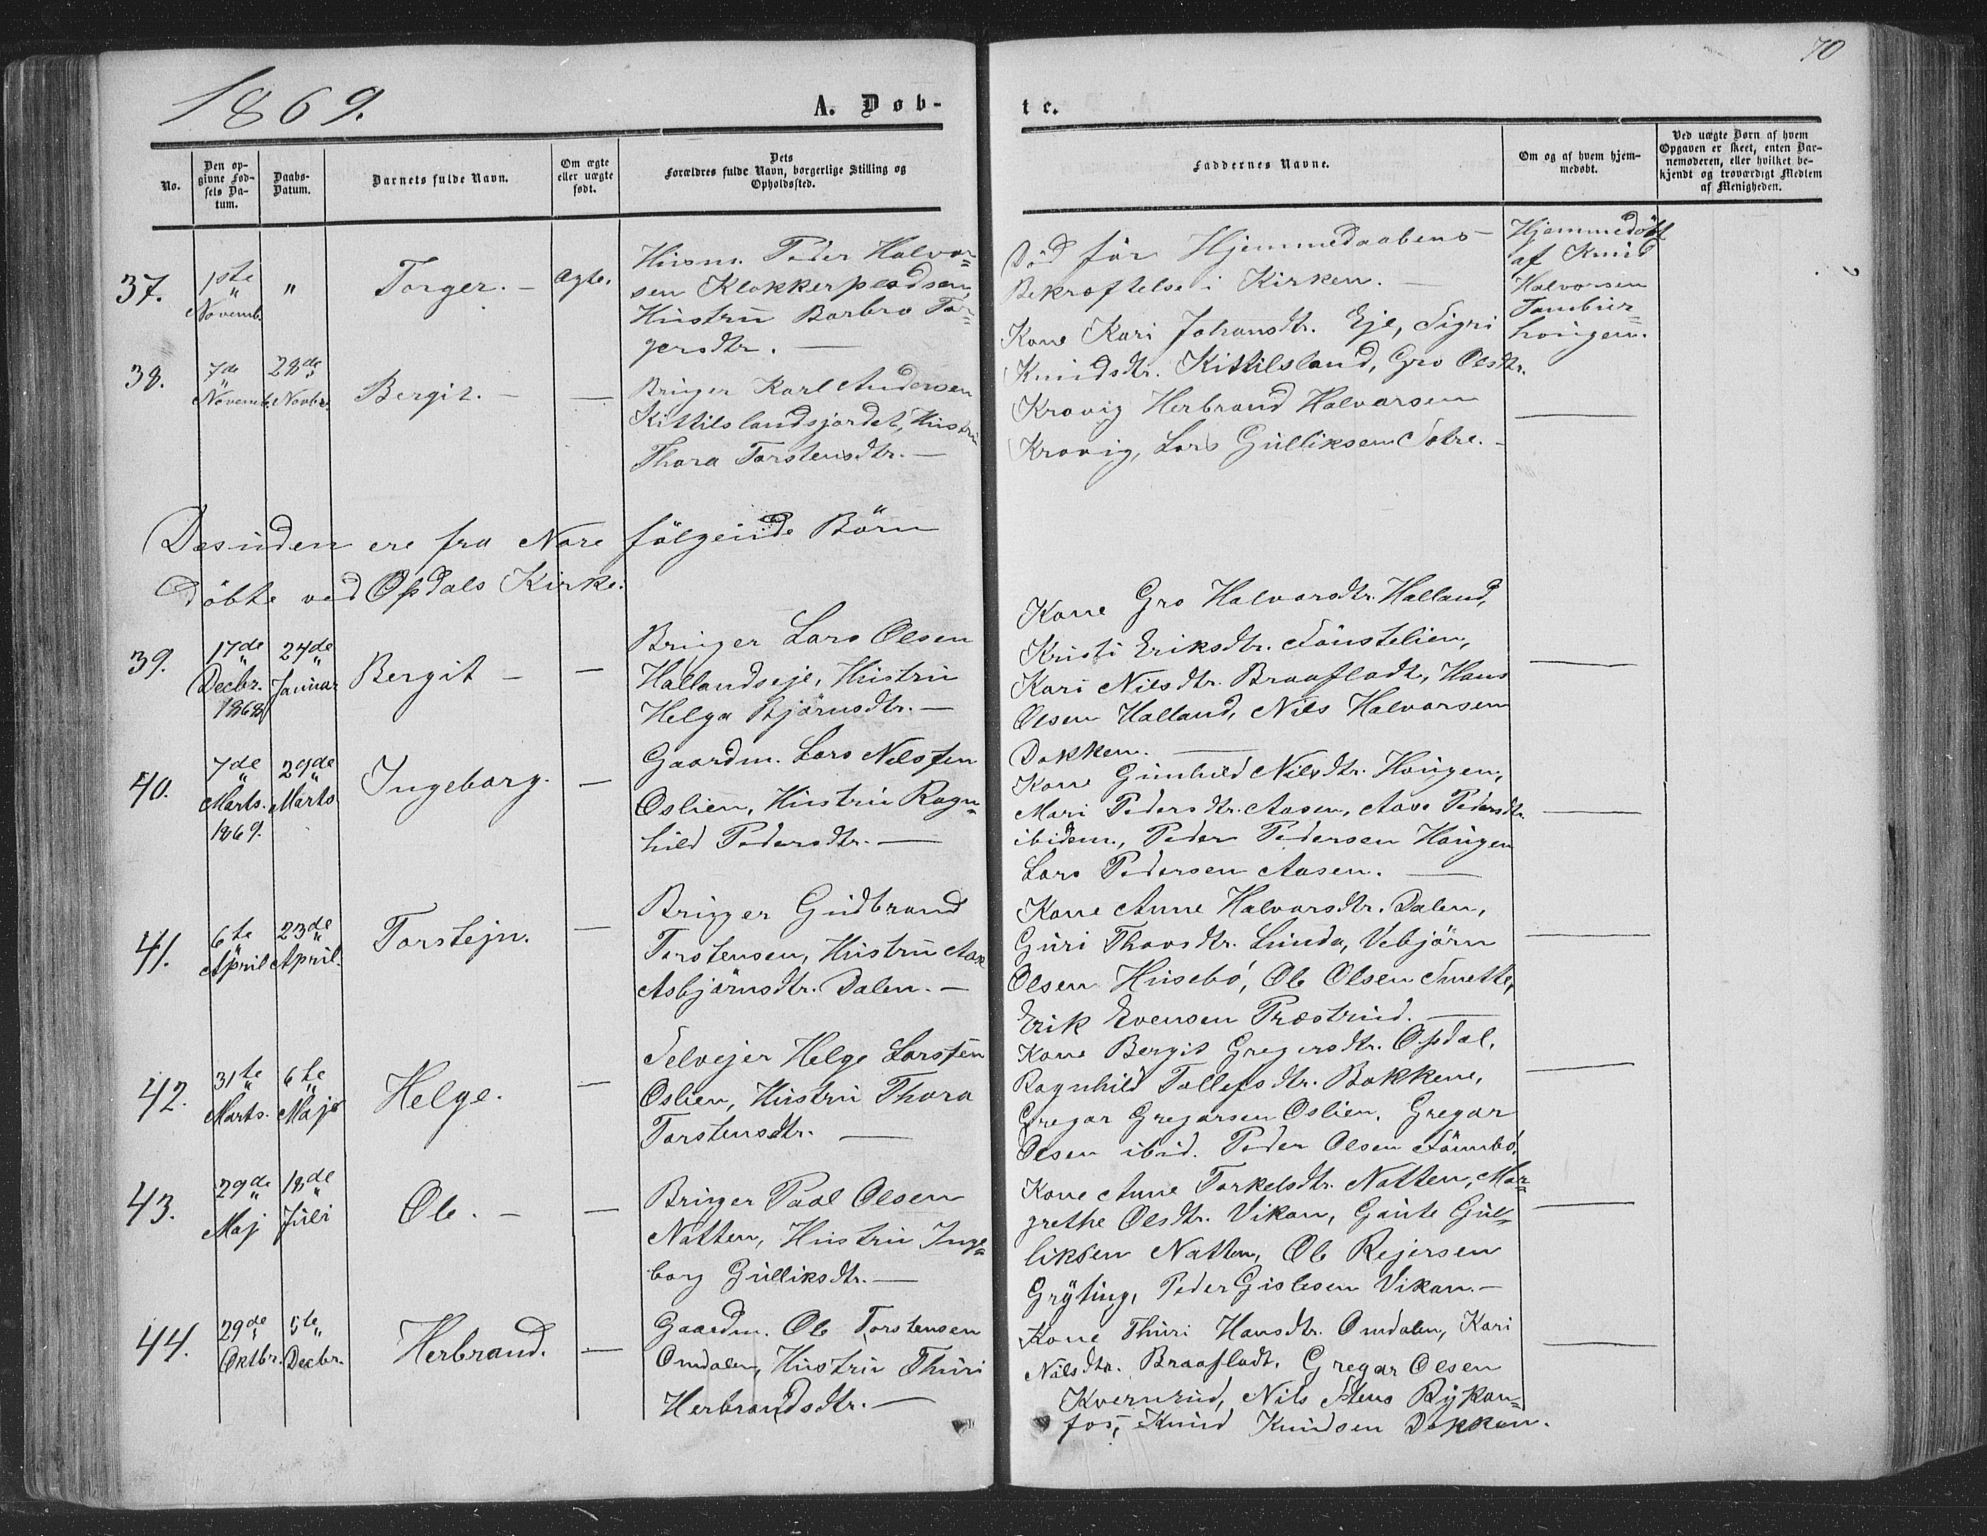 70
1869.
A. Døb-
te.
No.
Den op-
givne Fød-
sels Da-
tum.
Daabs-
Datum.
Barnets fulde Navn.
Om ægte
eller uægte
født.
Dets
Forældres fulde Navn, borgerlige Stilling og
Opholdssted.
Faddernes Navne.
Om og af hvem hjem-
medøbt.
Ved uægte Børn af hvem
Opgaven er skeet, enten Bar-
nemoderen, eller hvilket be-
kjendt og troværdigt Medlem
af Menigheden.
37.
1ste
"
Novemb.
"
Torger. —
Ægte.
Husm. Peder Halvor=
sen Klokkerpladsen,
Hustru Barbro Tor=
gersdtr. —
Død før Hjemmedaabens
Bekræftelse i Kirken. —
Hjemmedøbt
af Knud
Halvorsen
hougen.
38.
7de
"
Novemb.
28de
"
Novbr.
Bergit. —
—
Bruger Karl Andersen
Kittilslandsjordet, Hustru
Thora Torstensdtr. —
Kone Kari Johansdtr. Eje, Sigri
Knudsdtr. Kittilsland, Gro Olsdtr.
Kravig Herbrand Halvorsen
Kravig, Lars Gulliksen Sotre. -
—
Desuden ere fra Nore følgende Børn
døbte ved Opdals Kirke:
39.
17de
"
Decbr.
1868
24de
"
Januar
Bergit —
—
Bruger Lars Olsen
Hallandseje, Hustru
Helga Bjørnsdtr. —
Kone Gro Halvorsdtr. Halland,
Kristi Eriksdtr. Tønstelien,
Kari Nilsdtr. Braafladt, Hans
Olsen Halland, Nils Halvorsen
Dokken. —
—
40.
7de
"
Marts.
1869.
29de
"
Marts
Ingeborg.
—
Gaardm. Lars Nilssen
Oslien, Hustru Ragn=
hild Pedersdtr. —
Kone Gunhild Nilsdtr. Hougen,
Mari Pedersdtr. Aasen, Aase Pedersdtr.
ibidem., Peder Pedersen Hougen
Lars Pedersen Aasen. —
—
41.
6te
"
April
23de
"
April.
Torstejn.
—
Bruger Gudbrand
Torstensen, Hustru Aase
Asbjørnsdtr. Dalen. —
Kone Anne Halvorsdtr. Dalen,
Guri Thorsdtr. Lunda, Vebjørn
Olsen Husebø, Ole Olsen Smette,
Erik Evensen Præstrud. —
—
42.
31te
"
Marts.
6te
"
Maj
Helge.
—
Selvejer Helge Larssen
Oslien, Hustru Thora
Torstensdtr. —
Kone Bergit Gregersdtr. Opdal,
Ragnhild Tollefsdtr. Bakkene,
Gregar Gregarsen Oslien, Gregar
Olsen ibid. Peder Olsen Tømbø.
—
43.
29de
"
Maj
18de
"
Juli
Ole. —
—
Bruger Paal Olsen
Natten, Hustru Inge=
borg Gulliksdtr. —
Kone Anne Torkelsdtr. Natten, Mar=
grethe Olsdtr. Vikan, Gunte Gul=
liksen Natten, Ole Rejersen
Gryting, Peder Gislesen Vikan. —
—
44.
29de
"
Oktbr.
5te
"
Decbr.
Herbrand.
—
Gaardm. Ole Torstensen
Omdalen, Hustru Thuri
Herbrandsdtr. —
Kone Thuri Hansdtr. Omdalen, Kari
Nilsdtr. Braafladt, Gregar Olsen
Kvernrud, Nils Stens Rykan=
fos, Knud Knudsen Dokken.
—